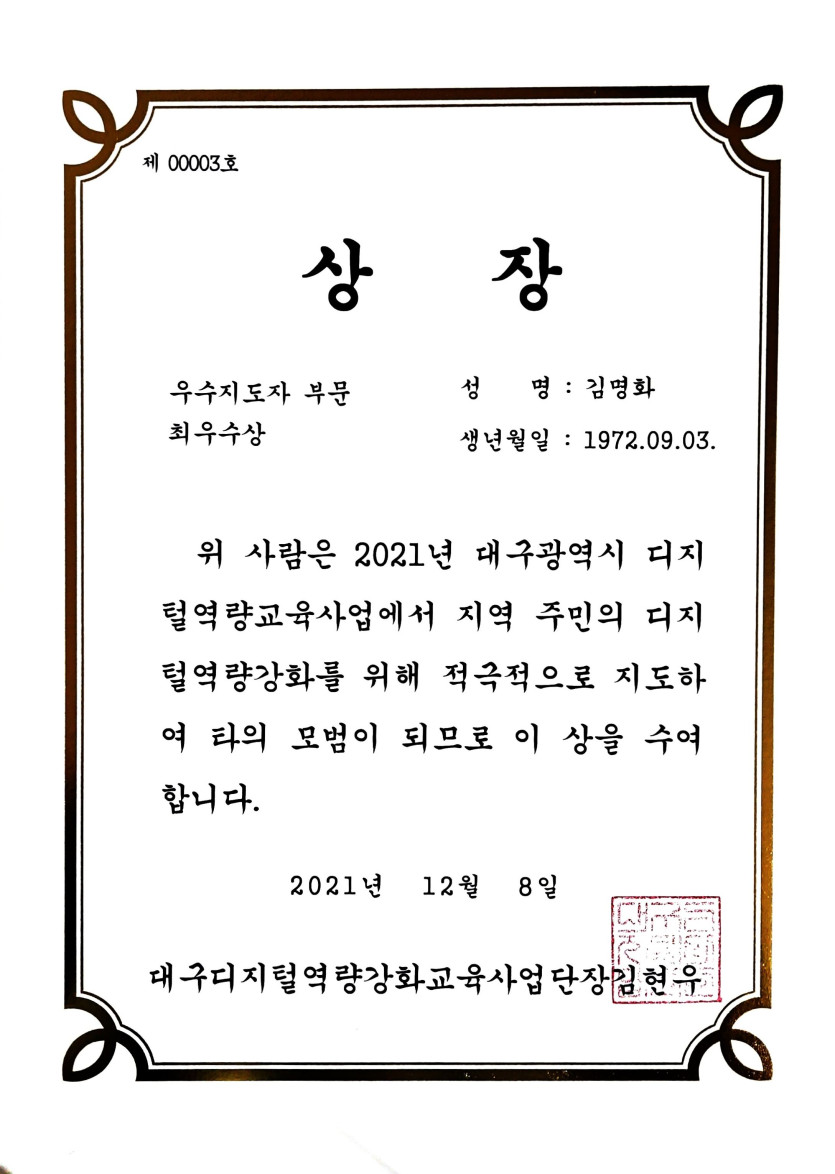 제 00003호
상 장
우수지도자 부문
최우수상
성 명 : 김명화
생년월일 : 1972.09.03.
위 사람은 2021년 대구광역시 디지
털역량교육사업에서 지역 주민의 디지
털역량강화를 위해 적극적으로 지도하
여 타의 모범이 되므로 이 상을 수여
합니다.
2021년 12월 8일
대구디지털역량강화교육사업단장김현우